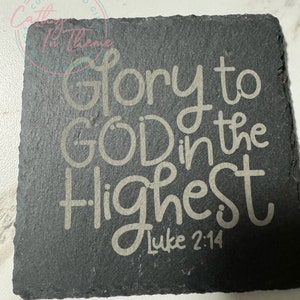 Cathy
In Theme
Glory to
GOD in the
Highest
Luke 2:14